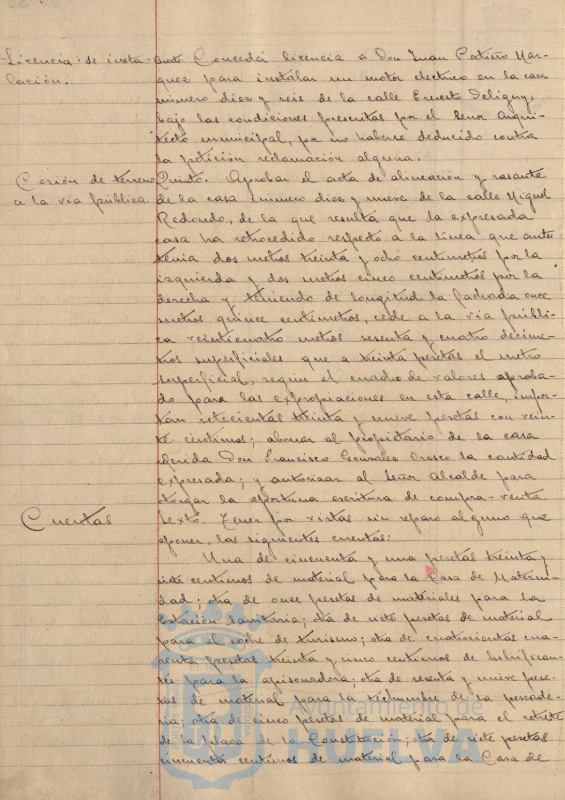 Licencia de insta-
lación.
Conceder licencia a Don Juan Márquez
quez para instalar un motor electrico en la casa
número diez y seis de la calle Ernesto Deligny,
bajo las condiciones prescritas por el Señor Arqui-
tecto municipal, por no haberse deducido contra
la petición reclamación alguna.
Cesión de terreno
a la via pública
Quinto. Aprobar el acta de alineación y rasante
de la casa número diez y nueve de la calle Miguel
Redondo, de la que resulta que la expresada
casa ha retrocedido respecto a la línea que ante-
tenia dos metros treinta y ocho centimetros por la
izquierda y dos metros cinco centimetros por la
derecha y teniendo de longitud la fachada once
metros quince centimetros, cede a la via públi-
ca veinticuatro metros sesenta y cuatro decime-
tros superficiales que a treinta pesetas el metro
superficial, según el cuadro de valores aproba-
do para las expropiaciones en esta calle, impor-
tan setecientas treinta y nueve pesetas con vein-
te centimos; abonar al propietario de la casa
referida Don Francisco Gonzalez Orosco la cantidad
expresada; y autorizar al Señor Alcalde para
otorgar la oportuna escritura de compra-venta
Cuentas
Sexto. Tener por vistas sin reparo alguno que
oponer, las siguientes cuentas:
Una de cincuenta y una pesetas treinta y
siete centimos de material para la Casa de Materni-
dad; otra de once pesetas de materiales para la
Estación Sanitaria; otra de siete pesetas de material
para el coche de turismo; otra de cuatrocientas cua-
renta pesetas treinta y cinco centimos de lubrifican-
tes para la apisonadora; otra de sesenta y nueve pese-
tas de material para la techumbre de la pescade-
ria; otra de cinco pesetas de material para el retrete
de la plaza de la Constitución; otra de siete pesetas
cincuenta centimos de material para la Casa de
Ayuntamiento de
HUELVA